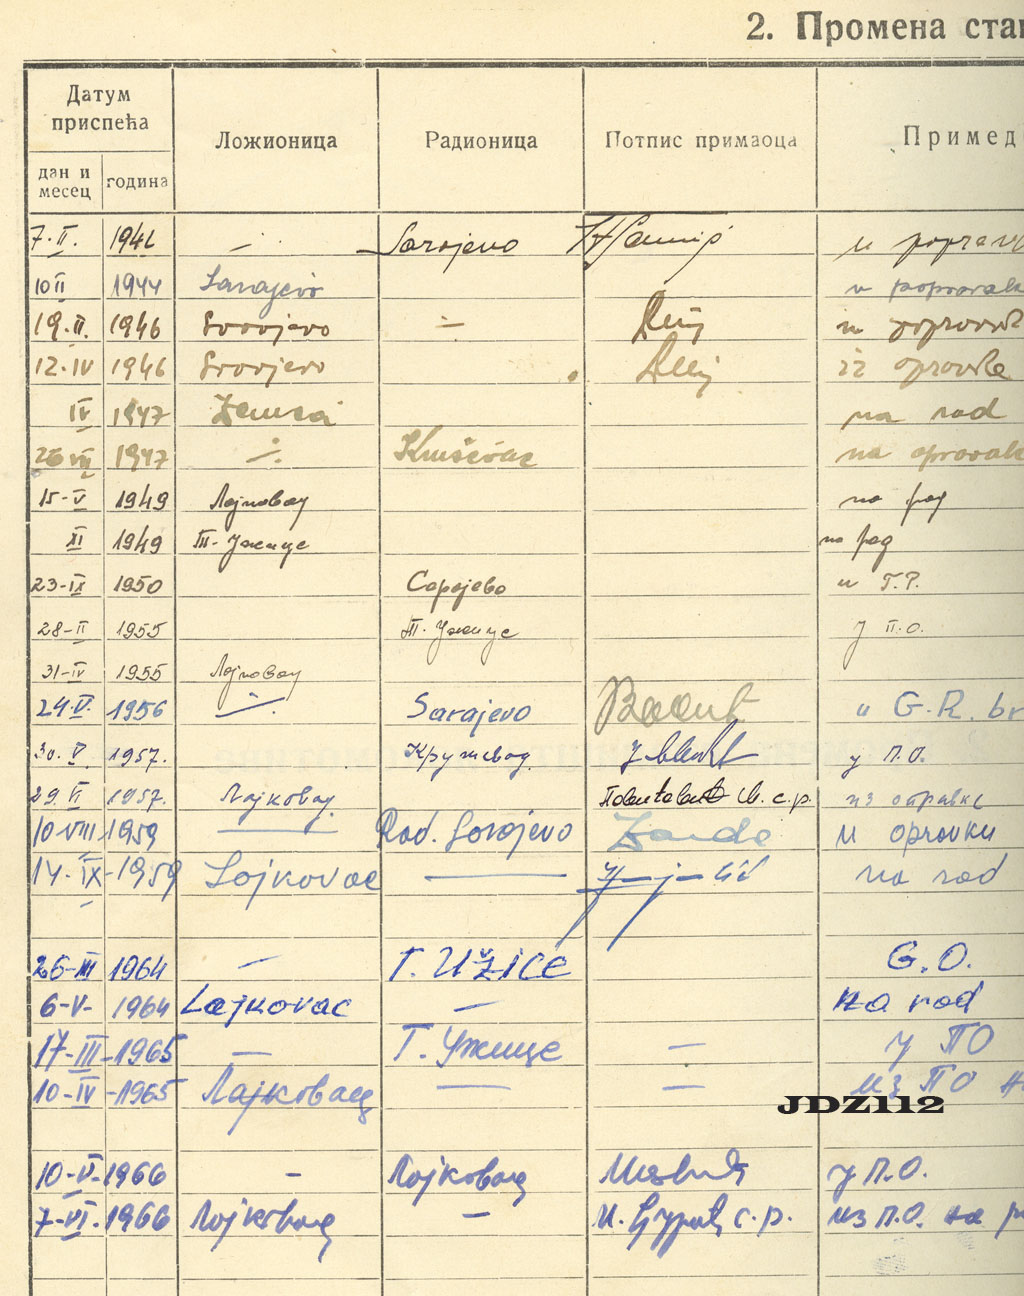 2. Промена ста
Датум приспећа
Ложионица
Радионица
Потпис примаоца
Примед
дан и месец
година
7. II. 194 Sarajevo u
10 II 1944 Sarajevo u popravak
19. II. 1946 Sarajevo u
12. IV 1946 Sarajevo iz opravke
IV 1947 Zenica na rad
26 VII 1947 Kruševac na opravak
15-V 1949 Лајковац на рад
XI 1949 Т. Ужице на рад
23-IX 1950 Сарајево и Г.Р.
28-II 1955 Т. Ужице у П.О.
31-IV 1955 Лајковац
24. V. 1956 Sarajevo u G.R. br
30. V. 1957. Крушевац у П.О.
29. VI 1957. Лајковац с.р. из оправке
10-VIII 1959 Rad. Sarajevo u opravku
14-IX-1959 Lajkovac na rad
26-III 1964 T. UŽICE G.O.
6-V- 1964 Lajkovac na rad
17-III-1965 Т. Ужице у ПО
10-IV-1965 Лајковац из ПО
JDZ112
10-V-1966 Лајковац у П.О.
7-VI.-1966 Лајковац с.р. из П.О. на